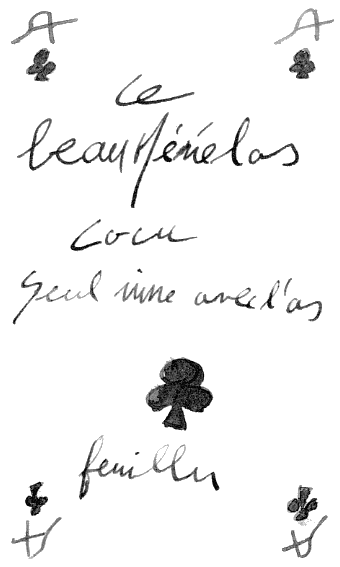 A A
Ce
beau Ménélas
cocu
seul rime avec l'as
feuillu
A A